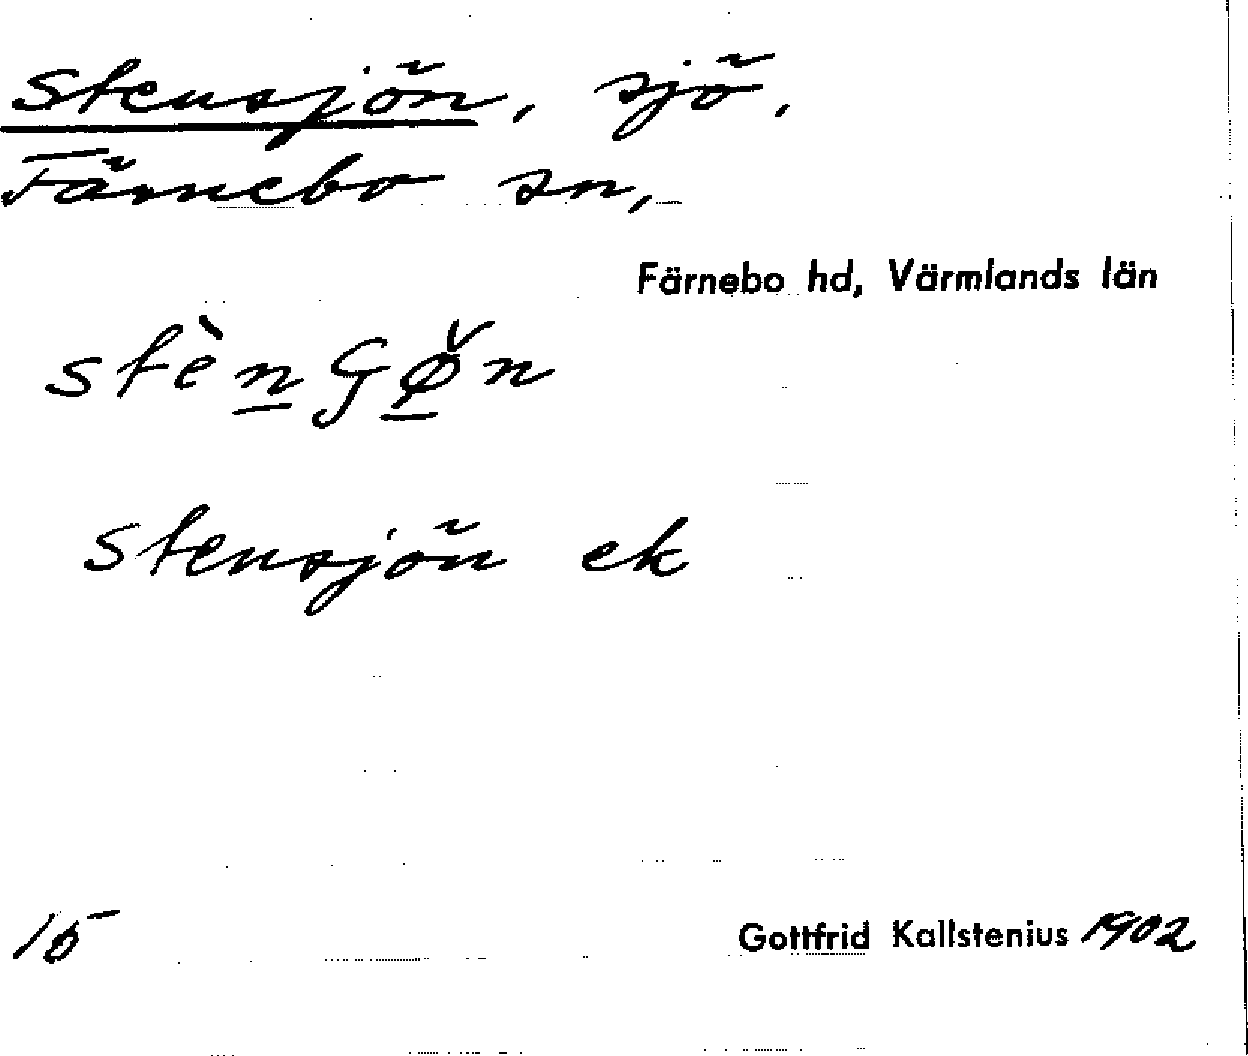 Stensjön, sjö.
Färnebo sn,
Färnebo hd, Värmlands län
stènGø̌n
Stensjön ek
15
Gottfrid Kallstenius 1902